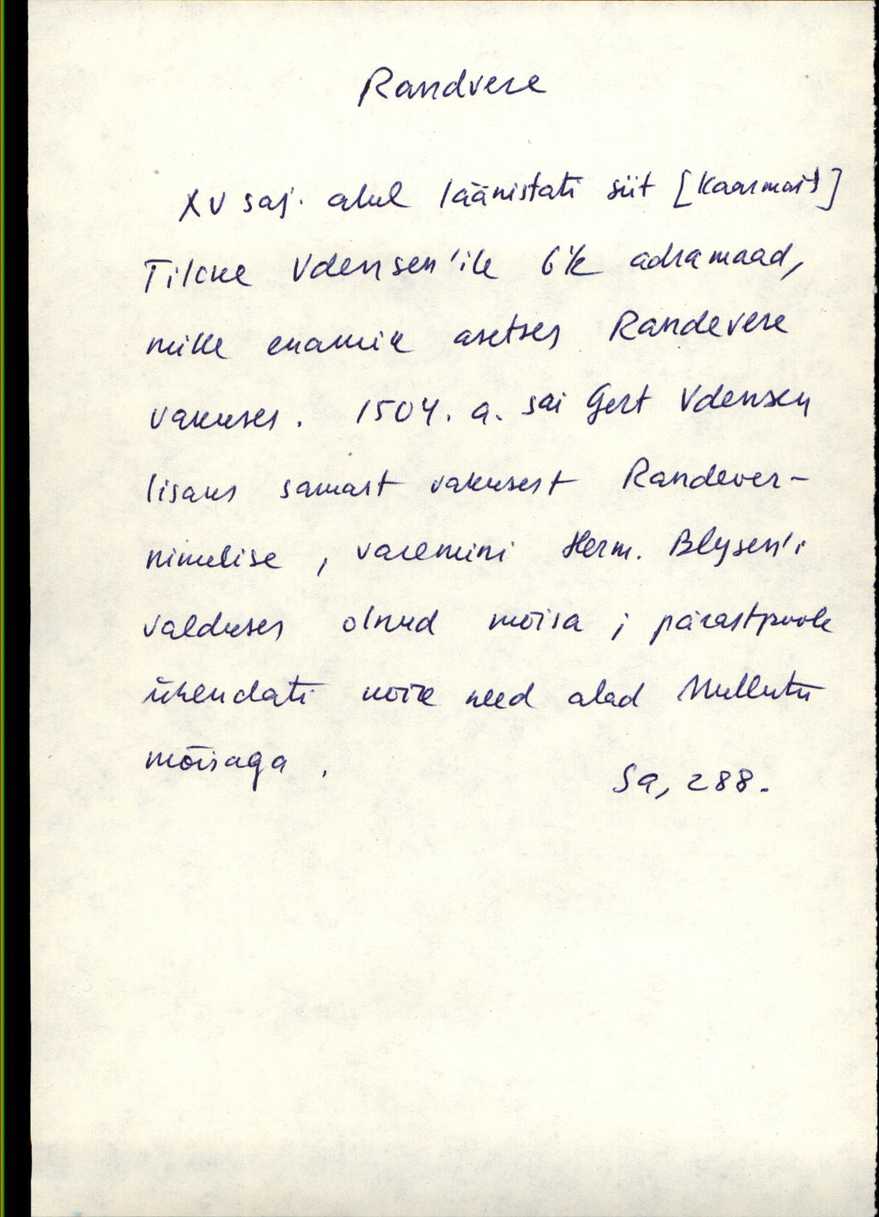 Randvere
XV saj. alul läänistati siit [Kaarmast]
Tilcke Vdensen'ile 6½ adramaad,
mille enamik asetses Randevere
vakuses. 1504. a. sai Gert Vdensen
lisaks samast vakusest Randever-
nimelise, varemini Herm. Blysen'i
valduses olnud mõisa; pärastpoole
ühendati kõik need alad Mullutu
mõisaga.
Sa, 288.